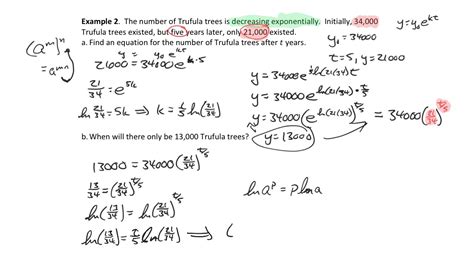 Example 2. The number of Trufula trees is decreasing exponentially. Initially, 34,000
Trufula trees existed, but five years later, only 21,000 existed.
a. Find an equation for the number of Trufula trees after t years.
y = y₀e^{kt}
y₀ = 34000
t = 5, y = 21000
(a^m)^n
= a^{mn}
y = y₀ e^{kt}
21000 = 34000e^{k·5}
21/34 = e^{5k}
ln(21/34) = 5k ⟹ k = 1/5 ln(21/34)
y = 34000e^{1/5 ln(21/34)t}
y = 34000e^{ln(21/34)·t/5}
y = 34000(e^{ln(21/34)})^{t/5} = 34000(21/34)^{t/5}
b. When will there only be 13,000 Trufula trees?
y = 13000
13000 = 34000(21/34)^{t/5}
13/34 = (21/34)^{t/5}
ln(13/34) = ln(21/34)^{t/5}
ln(13/34) = t/5 ln(21/34) ⟹ (
ln a^p = p ln a